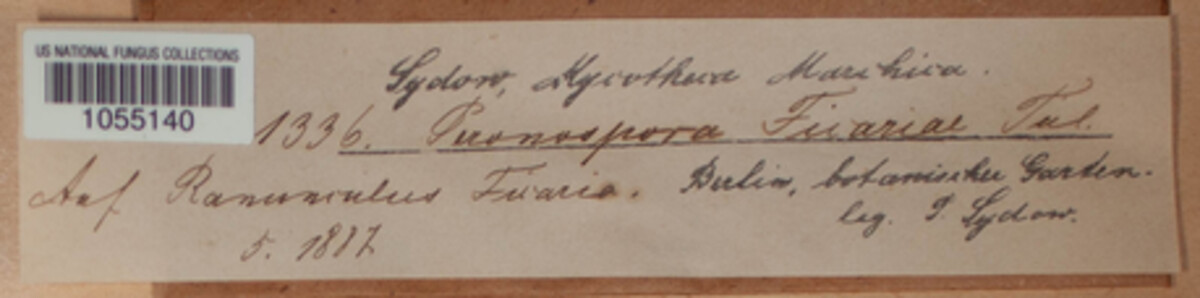 US NATIONAL FUNGUS COLLECTIONS
1055140
Sydow, Mycotheca Marchica.
1336. Peronospora Ficariae Tul.
Auf Ranunculus Ficaria. Berlin, botanischer Garten.
leg. P. Sydow.
5. 1887